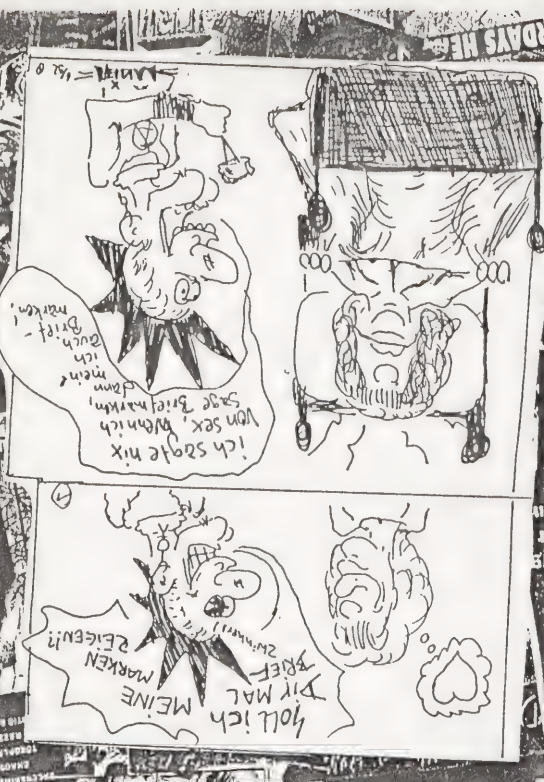 Soll ich
DIR MAL MEINE
BRIEF MARKEN
ZEIGEN!?
zwinker!
ich sagte nix
von sex, Wenn ich
sage Briefmarken,
dann
mein'
ich
auch
Brief-
marken!
RDAYS HE
CHAOS